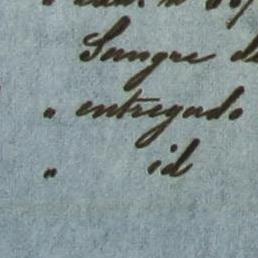 Sangre de
" entregado
" id